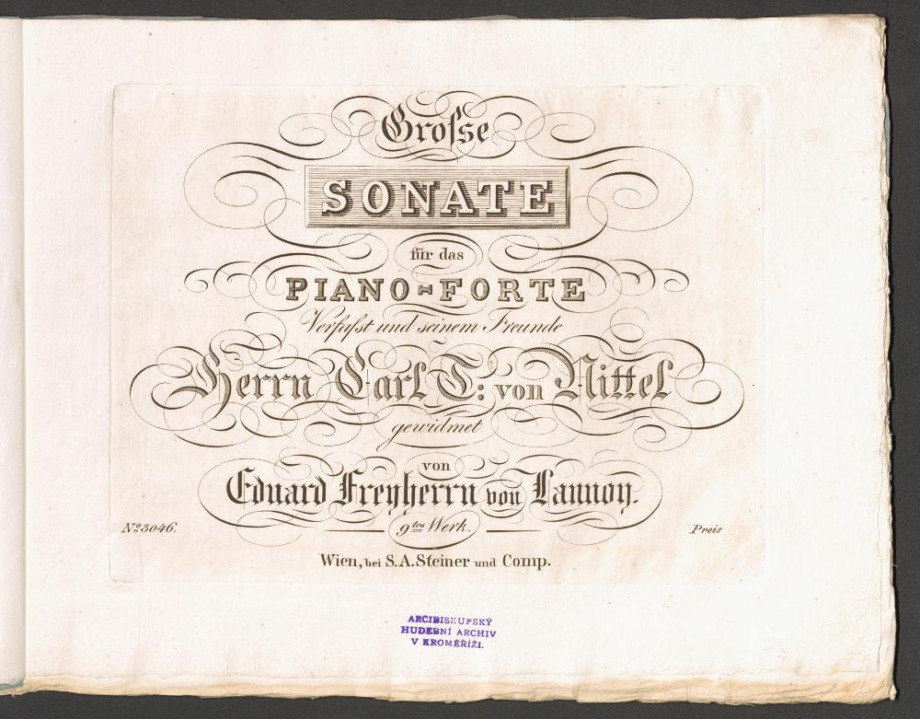 Große
SONATE
für das
PIANO=FORTE
Verfaßt und seinem Freunde
Herrn Carl T: von Nittel
gewidmet
von
Eduard Freyherrn von Lannoy.
9tes Werk.
No 3046.
Preis
Wien, bei S.A.Steiner und Comp.
ARCIBISKUPSKÝ
HUDEBNÍ ARCHIV
V KROMĚŘÍŽI.